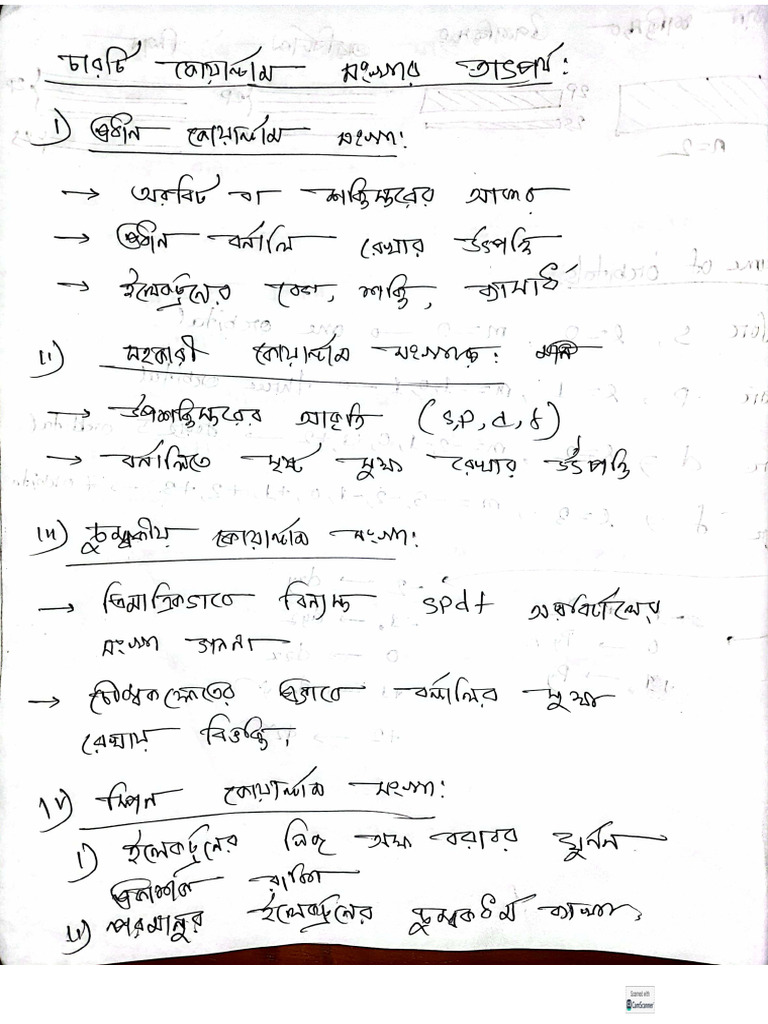 চারটি কোয়ান্টাম সংখ্যার তাৎপর্য:
i) প্রধান কোয়ান্টাম সংখ্যা:
→ অরবিট বা শক্তিস্তরের আকার
→ প্রধান বর্নালি রেখার উৎপত্তি
→ ইলেকট্রনের বেগ, শক্তি, ব্যাসার্ধ
ii) সহকারী কোয়ান্টাম সংখ্যার:
→ উপশক্তিস্তরের আকৃতি (s,p,d,f)
→ বর্নালিতে সৃষ্ট সুক্ষ্ম রেখার উৎপত্তি
iii) চুম্বকীয় কোয়ান্টাম সংখ্যা:
→ ত্রিমাত্রিকভাবে বিন্যস্ত spdf অরবিটালের
সংখ্যা গননা
→ চৌম্বকক্ষেত্রের প্রভাবে বর্নালির সুক্ষ্ম
রেখায় বিভক্তি।
iv) স্পিন কোয়ান্টাম সংখ্যা:
i) ইলেকট্রনের নিজ অক্ষ বরাবর ঘুর্নন
প্রকাশক রাশি
ii) পরমানুর ইলেকট্রনের চুম্বকধর্ম ব্যাখ্যা,
n=2
Scanned with
CamScanner